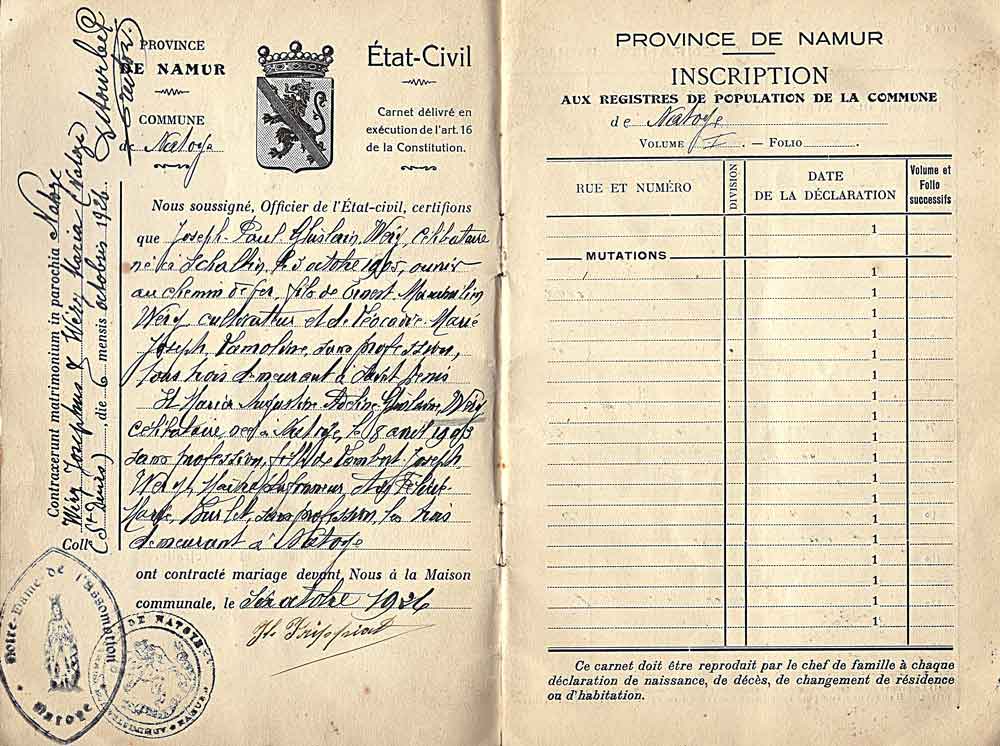 PROVINCE
DE NAMUR
COMMUNE
de Natoye
État-Civil
Carnet délivré en
exécution de l'art. 16
de la Constitution.
Nous soussigné, Officier de l'État-civil, certifions
que Joseph Paul Ghislain Wéry célibataire
né à Schaltin, le 3 octobre 1905, ouvrier
au chemin de fer, fils de Ernest Maximilien
Wéry cultivateur et de Léocadie Marie
Joseph Lamoline, sans profession,
tous trois demeurant à Saint Denis
Et Maria Augustine Ghislaine Wéry
célibataire, née à Natoye, le 8 avril 1903
sans profession, fille de Lambert Joseph
Wéry, et de
Marie Burlet, sans profession, les trois
demeurant à Natoye
ont contracté mariage devant Nous à la Maison
communale, le six octobre 1926
Contraxerunt matrimonium in parochia Natoye
Wéry Josephus & Wéry Maria (Natoye)
(St Denis), die 6 mensis octobris 1926
Coll
Notre-Dame de l'
Natoye
DE NATOYE
PROVINCE DE NAMUR
INSCRIPTION
AUX REGISTRES DE POPULATION DE LA COMMUNE
de Natoye
VOLUME I. — FOLIO .
RUE ET NUMÉRO
DIVISION
DATE
DE LA DÉCLARATION
Volume et
Folio
successifs
1
MUTATIONS
1
1
1
1
1
1
1
1
1
1
1
1
1
1
1
1
1
1
Ce carnet doit être reproduit par le chef de famille à chaque
déclaration de naissance, de décès, de changement de résidence
ou d'habitation.